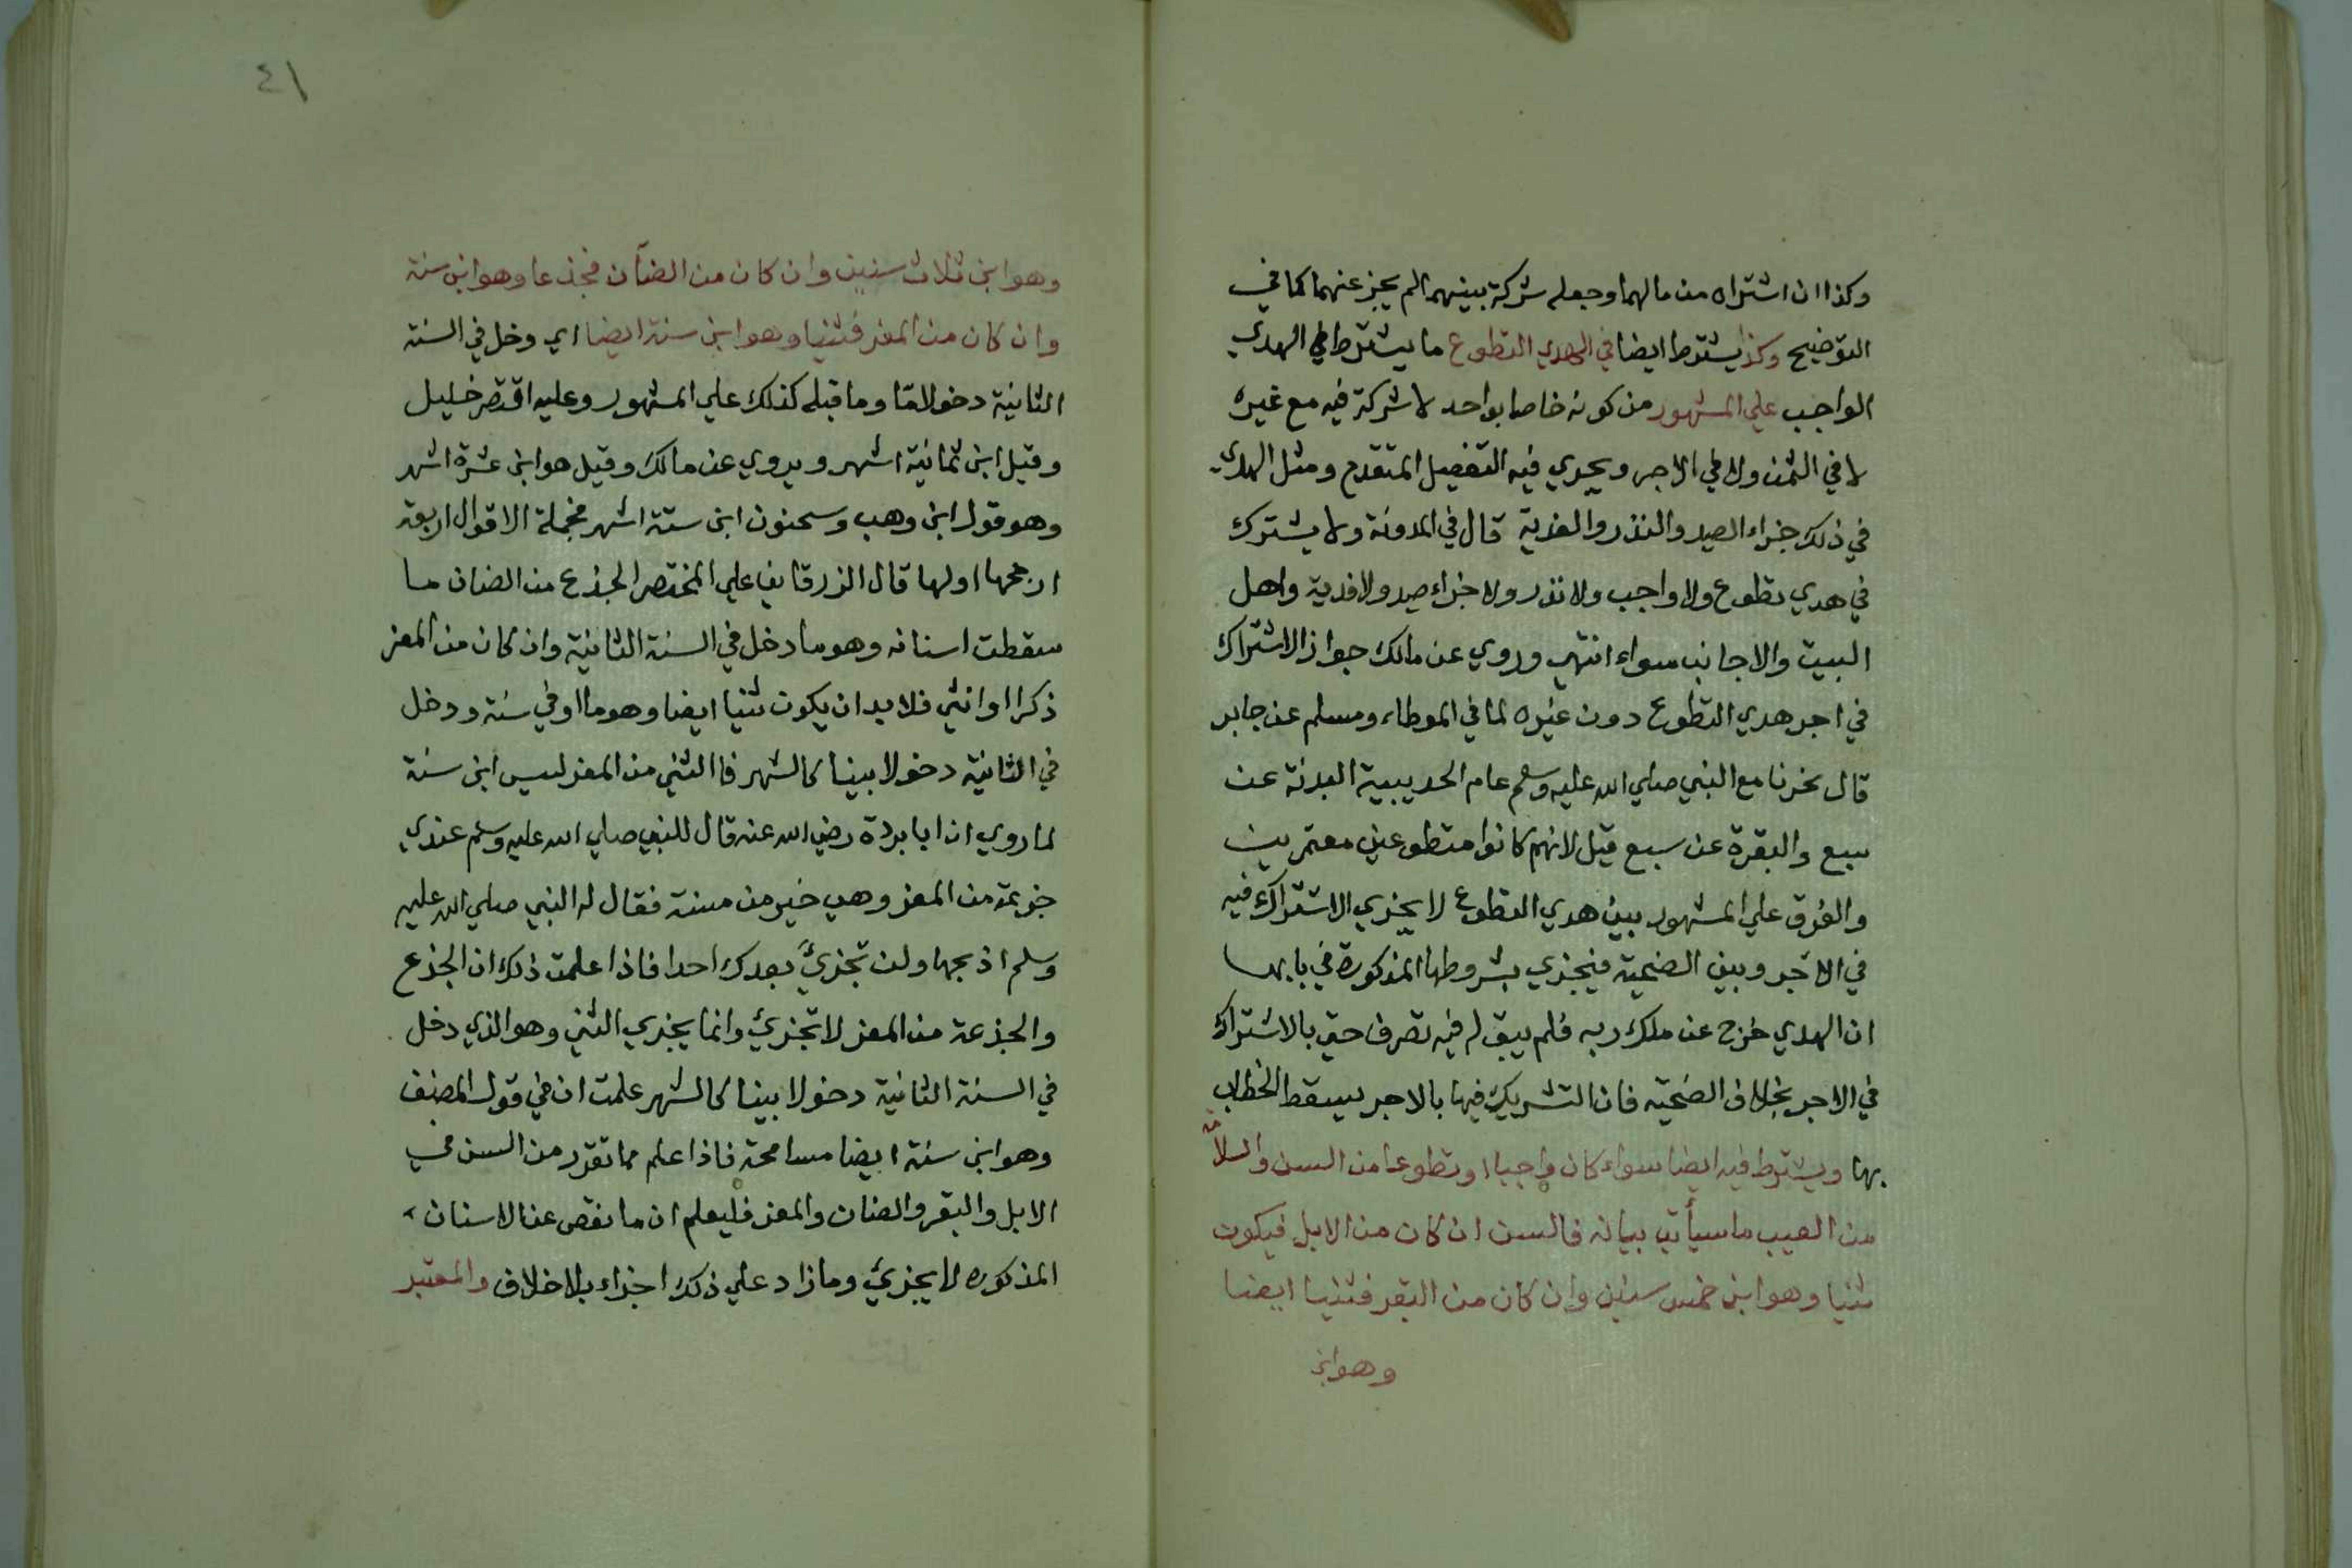 وكذا ان اشتراه من مالهما وجعله شركة بينهما لم يجز عنهما كما في
التوضيح وكذا يشترط ايضا في الهدي التطوع ما يشترط في الهدي
الواجب علي المشهور من كونه خاصا بواحد لا شركة فيه مع غيره
لا في الثمن ولا في الاجر ويجري فيه التفصيل المتقدم ومثل الهدي
في ذلك جزاء الصيد والنذر والفدية قال في المدونة ولا يشترك
في هدي تطوع ولا واجب ولا نذر ولا جزاء صيد ولا فدية واهل
البيت والاجانب سواء انتهي وروي عن مالك جواز الاشتراك
في اجر هدي التطوع دون غيره لما في الموطاء ومسلم عن جابر
قال نحرنا مع النبي صلي الله عليه وسلم عام الحديبية البدنة عن
سبع والبقرة عن سبع قيل لانهم كانوا متطوعين معتمرين
والفرق علي المشهور بين هدي التطوع لا يجزي الاشتراك فيه
في الاجر وبين الضحية فيجزي بشروطها المذكورة في بابها
ان الهدي خرج عن ملك ربه فلم يبق له فيه تصرف حتي بالاشتراك
في الاجر بخلاف الضحية فان التشريك فيها بالاجر يسقط الخطاب
بها ويشترط فيه ايضا سواء كان واجبا او تطوعا من السن والسلامة
من العيب ما سيأتي بيانه فالسن ان كان من الابل فيكون
ثنيا وهو ابن خمس سنين وان كان من البقر فثنيا ايضا
وهو ابن
٤١
وهو ابن ثلاث سنين وان كان من الضأن فجذعا وهو ابن سنة
وان كان من المعز فثنيا وهو ابن سنة ايضا اي دخل في السنة
الثانية دخولا مّا وما قبله كذلك علي المشهور وعليه اقتصر خليل
وقيل ابن ثمانية اشهر ويروي عن مالك وقيل هو ابن عشرة اشهر
وهو قول ابن وهب وسحنون ابن ستة اشهر فجملة الاقوال اربعة
ارجحها اولها قال الزرقاني علي المختصر الجذع من الضان ما
سقطت اسنانه وهو ما دخل في السنة الثانية وان كان من المعز
ذكرا او انثي فلا بد ان يكون ثنيا ايضا وهو ما اوفي سنة ودخل
في الثانية دخولا بينا كالشهر فاالثني من المعز ليس ابن سنة
لما روي ان ابا بردة رضي الله عنه قال للنبي صلي الله عليه وسلم عندي
جزيمة من المعز وهي خير من مسنة فقال له النبي صلي الله عليه
وسلم اذبحها ولن تجزيَ بعدك احدا فاذا علمت ذلك ان الجذع
والجذعة من المعز لا تجزئ وانما يجزي الثني وهو الذي دخل
في السنة الثانية دخولا بينا كالشهر علمت ان في قول المصنف
وهو ابن سنة ايضا مسامحة فاذا علم ما تقرر من السن في
الابل والبقر والضان والمعز فليعلم ان ما نقص عن الاسنان
المذكوره لا يجزئ وما زاد علي ذلك اجزاء بلا خلاف والمعتبر